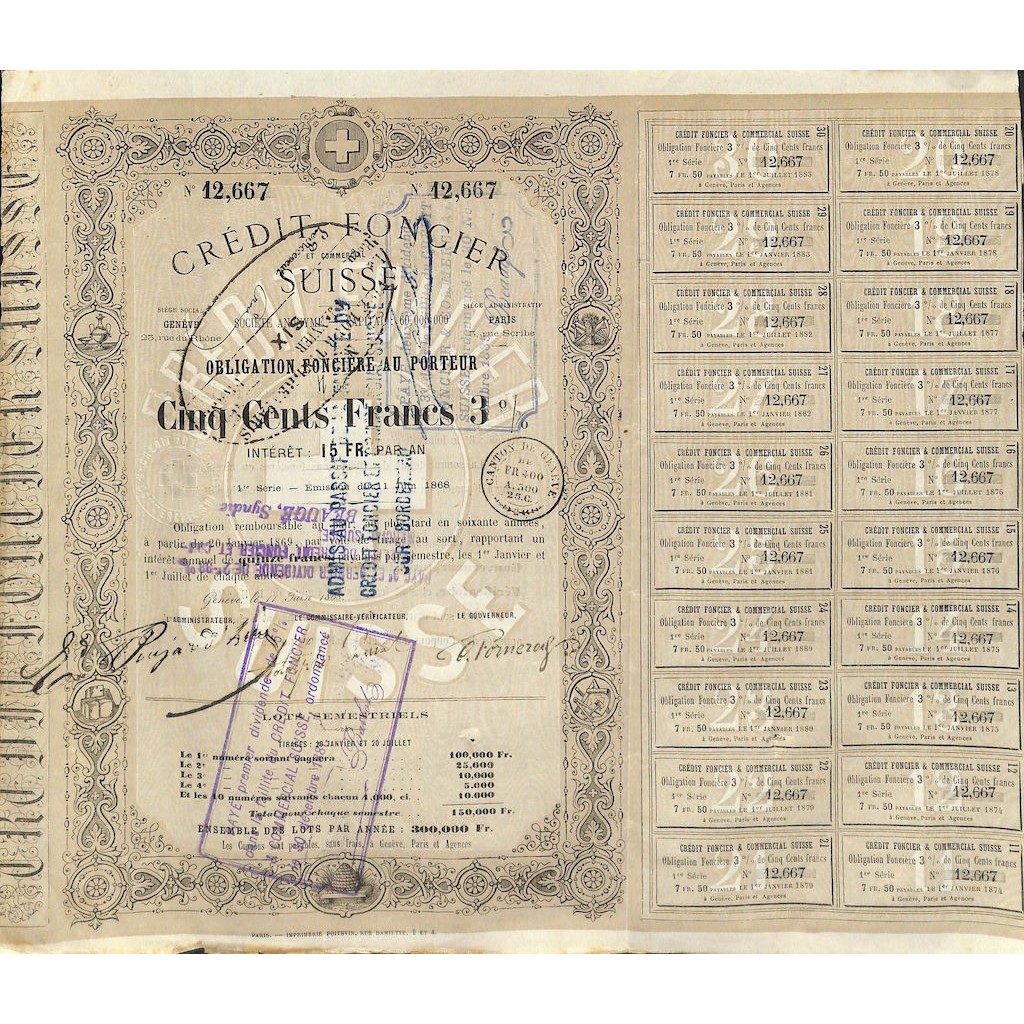 Nº 12,667 Nº 12,667
CRÉDIT FONCIER
ET COMMERCIAL
SUISSE
SIÈGE SOCIAL SIÈGE ADMINISTRATIF
GENÈVE SOCIÉTÉ ANONYME CAPITAL 60,000,000 PARIS
23, rue du Rhône rue Scribe
OBLIGATION FONCIÈRE AU PORTEUR
Cinq Cents Francs 3 %
INTÉRÊT : 15 FR. PAR AN
1re Série — Emission du 11 Juin 1868
CANTON DE GENÈVE
DE
FR 400
A 500
25 C.
Obligation remboursable au plus tard en soixante années,
à partir du 20 Janvier 1869, par voie de tirage au sort, rapportant un
intérêt annuel de quinze francs, par semestre, les 1er Janvier et
1er Juillet de chaque
Genève, le 11 Juin 1868
L'ADMINISTRATEUR, LE COMMISSAIRE-VÉRIFICATEUR, LE GOUVERNEUR,
LOTS SEMESTRIELS
TIRAGES: 20 JANVIER ET 20 JUILLET
Le 1er numéro sortant gagnera 100,000 Fr.
Le 2e 25,000
Le 3e 10,000
Le 4e 5,000
Et les 10 numéros suivants chacun 1,000, ci. 10,000
Total pour chaque semestre 150,000 Fr.
ENSEMBLE DES LOTS PAR ANNÉE : 300,000 Fr.
Les Coupons sont payables, sans frais, à Genève, Paris et Agences
PARIS. — IMPRIMERIE POITEVIN, RUE DAMIETTE, 2 ET 4.
ADMIS AU PASSIF
CRÉDIT FONCIER ET
BEAUGÉ, Syndic
PAYÉ premier dividende
dans la faillite du CRÉDIT FONCIER
& COMMERCIAL SUISSE, ordonnancé
30
CRÉDIT FONCIER & COMMERCIAL SUISSE
Obligation Foncière 3 % de Cinq Cents francs
1re Série Nº 12,667
7 FR. 50 PAYABLES LE 1er JUILLET 1883
à Genève, Paris et Agences
20
CRÉDIT FONCIER & COMMERCIAL SUISSE
Obligation Foncière 3 % de Cinq Cents francs
1re Série Nº 12,667
7 FR. 50 PAYABLES LE 1er JUILLET 1878
à Genève, Paris et Agences
29
CRÉDIT FONCIER & COMMERCIAL SUISSE
Obligation Foncière 3 % de Cinq Cents francs
1re Série Nº 12,667
7 FR. 50 PAYABLES LE 1er JANVIER 1883
à Genève, Paris et Agences
19
CRÉDIT FONCIER & COMMERCIAL SUISSE
Obligation Foncière 3 % de Cinq Cents francs
1re Série Nº 12,667
7 FR. 50 PAYABLES LE 1er JANVIER 1878
à Genève, Paris et Agences
28
CRÉDIT FONCIER & COMMERCIAL SUISSE
Obligation Foncière 3 % de Cinq Cents francs
1re Série Nº 12,667
7 FR. 50 PAYABLES LE 1er JUILLET 1882
à Genève, Paris et Agences
18
CRÉDIT FONCIER & COMMERCIAL SUISSE
Obligation Foncière 3 % de Cinq Cents francs
1re Série Nº 12,667
7 FR. 50 PAYABLES LE 1er JUILLET 1877
à Genève, Paris et Agences
27
CRÉDIT FONCIER & COMMERCIAL SUISSE
Obligation Foncière 3 % de Cinq Cents francs
1re Série Nº 12,667
7 FR. 50 PAYABLES LE 1er JANVIER 1882
à Genève, Paris et Agences
17
CRÉDIT FONCIER & COMMERCIAL SUISSE
Obligation Foncière 3 % de Cinq Cents francs
1re Série Nº 12,667
7 FR. 50 PAYABLES LE 1er JANVIER 1877
à Genève, Paris et Agences
26
CRÉDIT FONCIER & COMMERCIAL SUISSE
Obligation Foncière 3 % de Cinq Cents francs
1re Série Nº 12,667
7 FR. 50 PAYABLES LE 1er JUILLET 1881
à Genève, Paris et Agences
16
CRÉDIT FONCIER & COMMERCIAL SUISSE
Obligation Foncière 3 % de Cinq Cents francs
1re Série Nº 12,667
7 FR. 50 PAYABLES LE 1er JUILLET 1876
à Genève, Paris et Agences
25
CRÉDIT FONCIER & COMMERCIAL SUISSE
Obligation Foncière 3 % de Cinq Cents francs
1re Série Nº 12,667
7 FR. 50 PAYABLES LE 1er JANVIER 1881
à Genève, Paris et Agences
15
CRÉDIT FONCIER & COMMERCIAL SUISSE
Obligation Foncière 3 % de Cinq Cents francs
1re Série Nº 12,667
7 FR. 50 PAYABLES LE 1er JANVIER 1876
à Genève, Paris et Agences
24
CRÉDIT FONCIER & COMMERCIAL SUISSE
Obligation Foncière 3 % de Cinq Cents francs
1re Série Nº 12,667
7 FR. 50 PAYABLES LE 1er JUILLET 1880
à Genève, Paris et Agences
14
CRÉDIT FONCIER & COMMERCIAL SUISSE
Obligation Foncière 3 % de Cinq Cents francs
1re Série Nº 12,667
7 FR. 50 PAYABLES LE 1er JUILLET 1875
à Genève, Paris et Agences
23
CRÉDIT FONCIER & COMMERCIAL SUISSE
Obligation Foncière 3 % de Cinq Cents francs
1re Série Nº 12,667
7 FR. 50 PAYABLES LE 1er JANVIER 1880
à Genève, Paris et Agences
13
CRÉDIT FONCIER & COMMERCIAL SUISSE
Obligation Foncière 3 % de Cinq Cents francs
1re Série Nº 12,667
7 FR. 50 PAYABLES LE 1er JANVIER 1875
à Genève, Paris et Agences
22
CRÉDIT FONCIER & COMMERCIAL SUISSE
Obligation Foncière 3 % de Cinq Cents francs
1re Série Nº 12,667
7 FR. 50 PAYABLES LE 1er JUILLET 1879
à Genève, Paris et Agences
12
CRÉDIT FONCIER & COMMERCIAL SUISSE
Obligation Foncière 3 % de Cinq Cents francs
1re Série Nº 12,667
7 FR. 50 PAYABLES LE 1er JUILLET 1874
à Genève, Paris et Agences
21
CRÉDIT FONCIER & COMMERCIAL SUISSE
Obligation Foncière 3 % de Cinq Cents francs
1re Série Nº 12,667
7 FR. 50 PAYABLES LE 1er JANVIER 1879
à Genève, Paris et Agences
11
CRÉDIT FONCIER & COMMERCIAL SUISSE
Obligation Foncière 3 % de Cinq Cents francs
1re Série Nº 12,667
7 FR. 50 PAYABLES LE 1er JANVIER 1874
à Genève, Paris et Agences